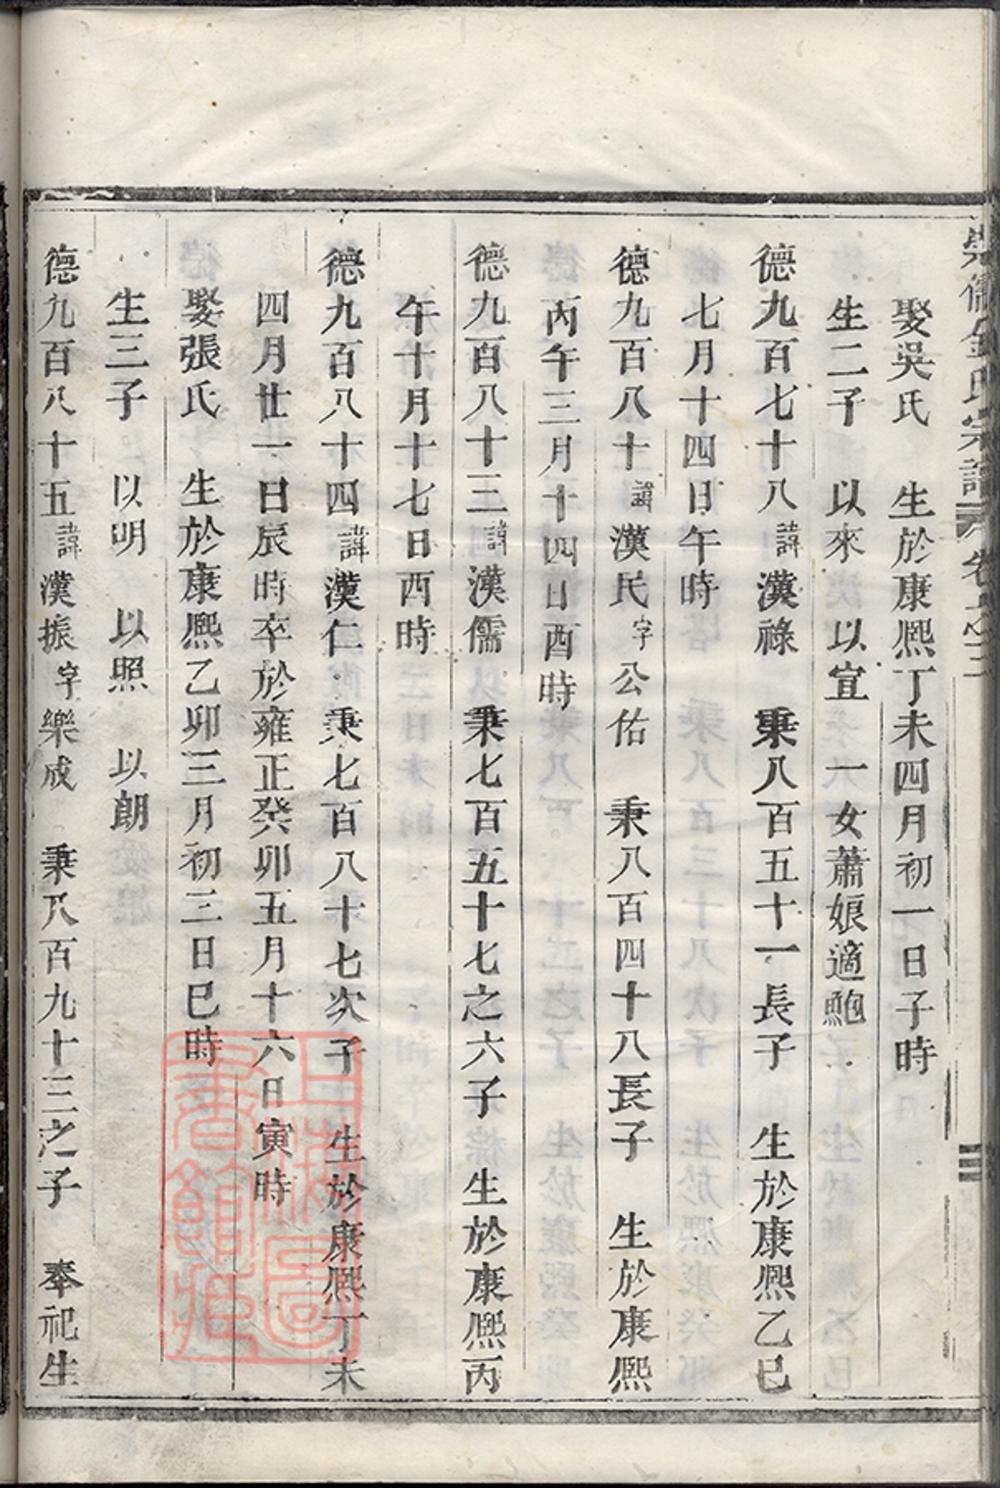 娶吳氏 生於康熙丁未四月初一日子時
生二子 以來 以宣 一女蕭娘適鮑
德九百七十八諱漢祿 秉八百五十一長子 生於康熙乙巳
七月十四日午時
德九百八十諱漢民字公佑 秉八百四十八長子 生於康熙
丙午三月十四日酉時
德九百八十三諱漢儒 秉七百五十七之六子 生於康熙丙
午十月十七日酉時
德九百八十四諱漢仁 秉七百八十七次子 生於康熙丁未
四月廿一日辰時卒於雍正癸卯五月十六日寅時
娶張氏 生於康熙乙卯三月初三日巳時
生三子 以明 以照 以朗
德九百八十五諱漢振字樂成 秉八百九十三之子 奉祀生
上海圖書館藏